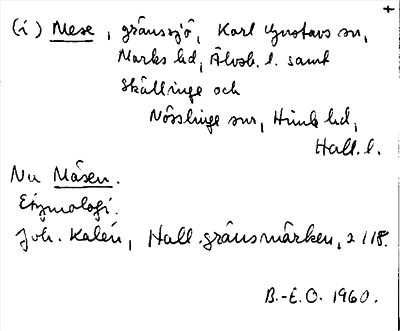 (i) Mese, gränssjö, Karl Gustavs sn,
Marks hd, Älvsb. l. samt
Skällinge och
Nösslinge snr, Himle hd,
Hall. l.
Nu Mäsen.
Etymologi.
Joh. Kalén, Hall. gränsmärken, s 118.
B.-E. O. 1960.